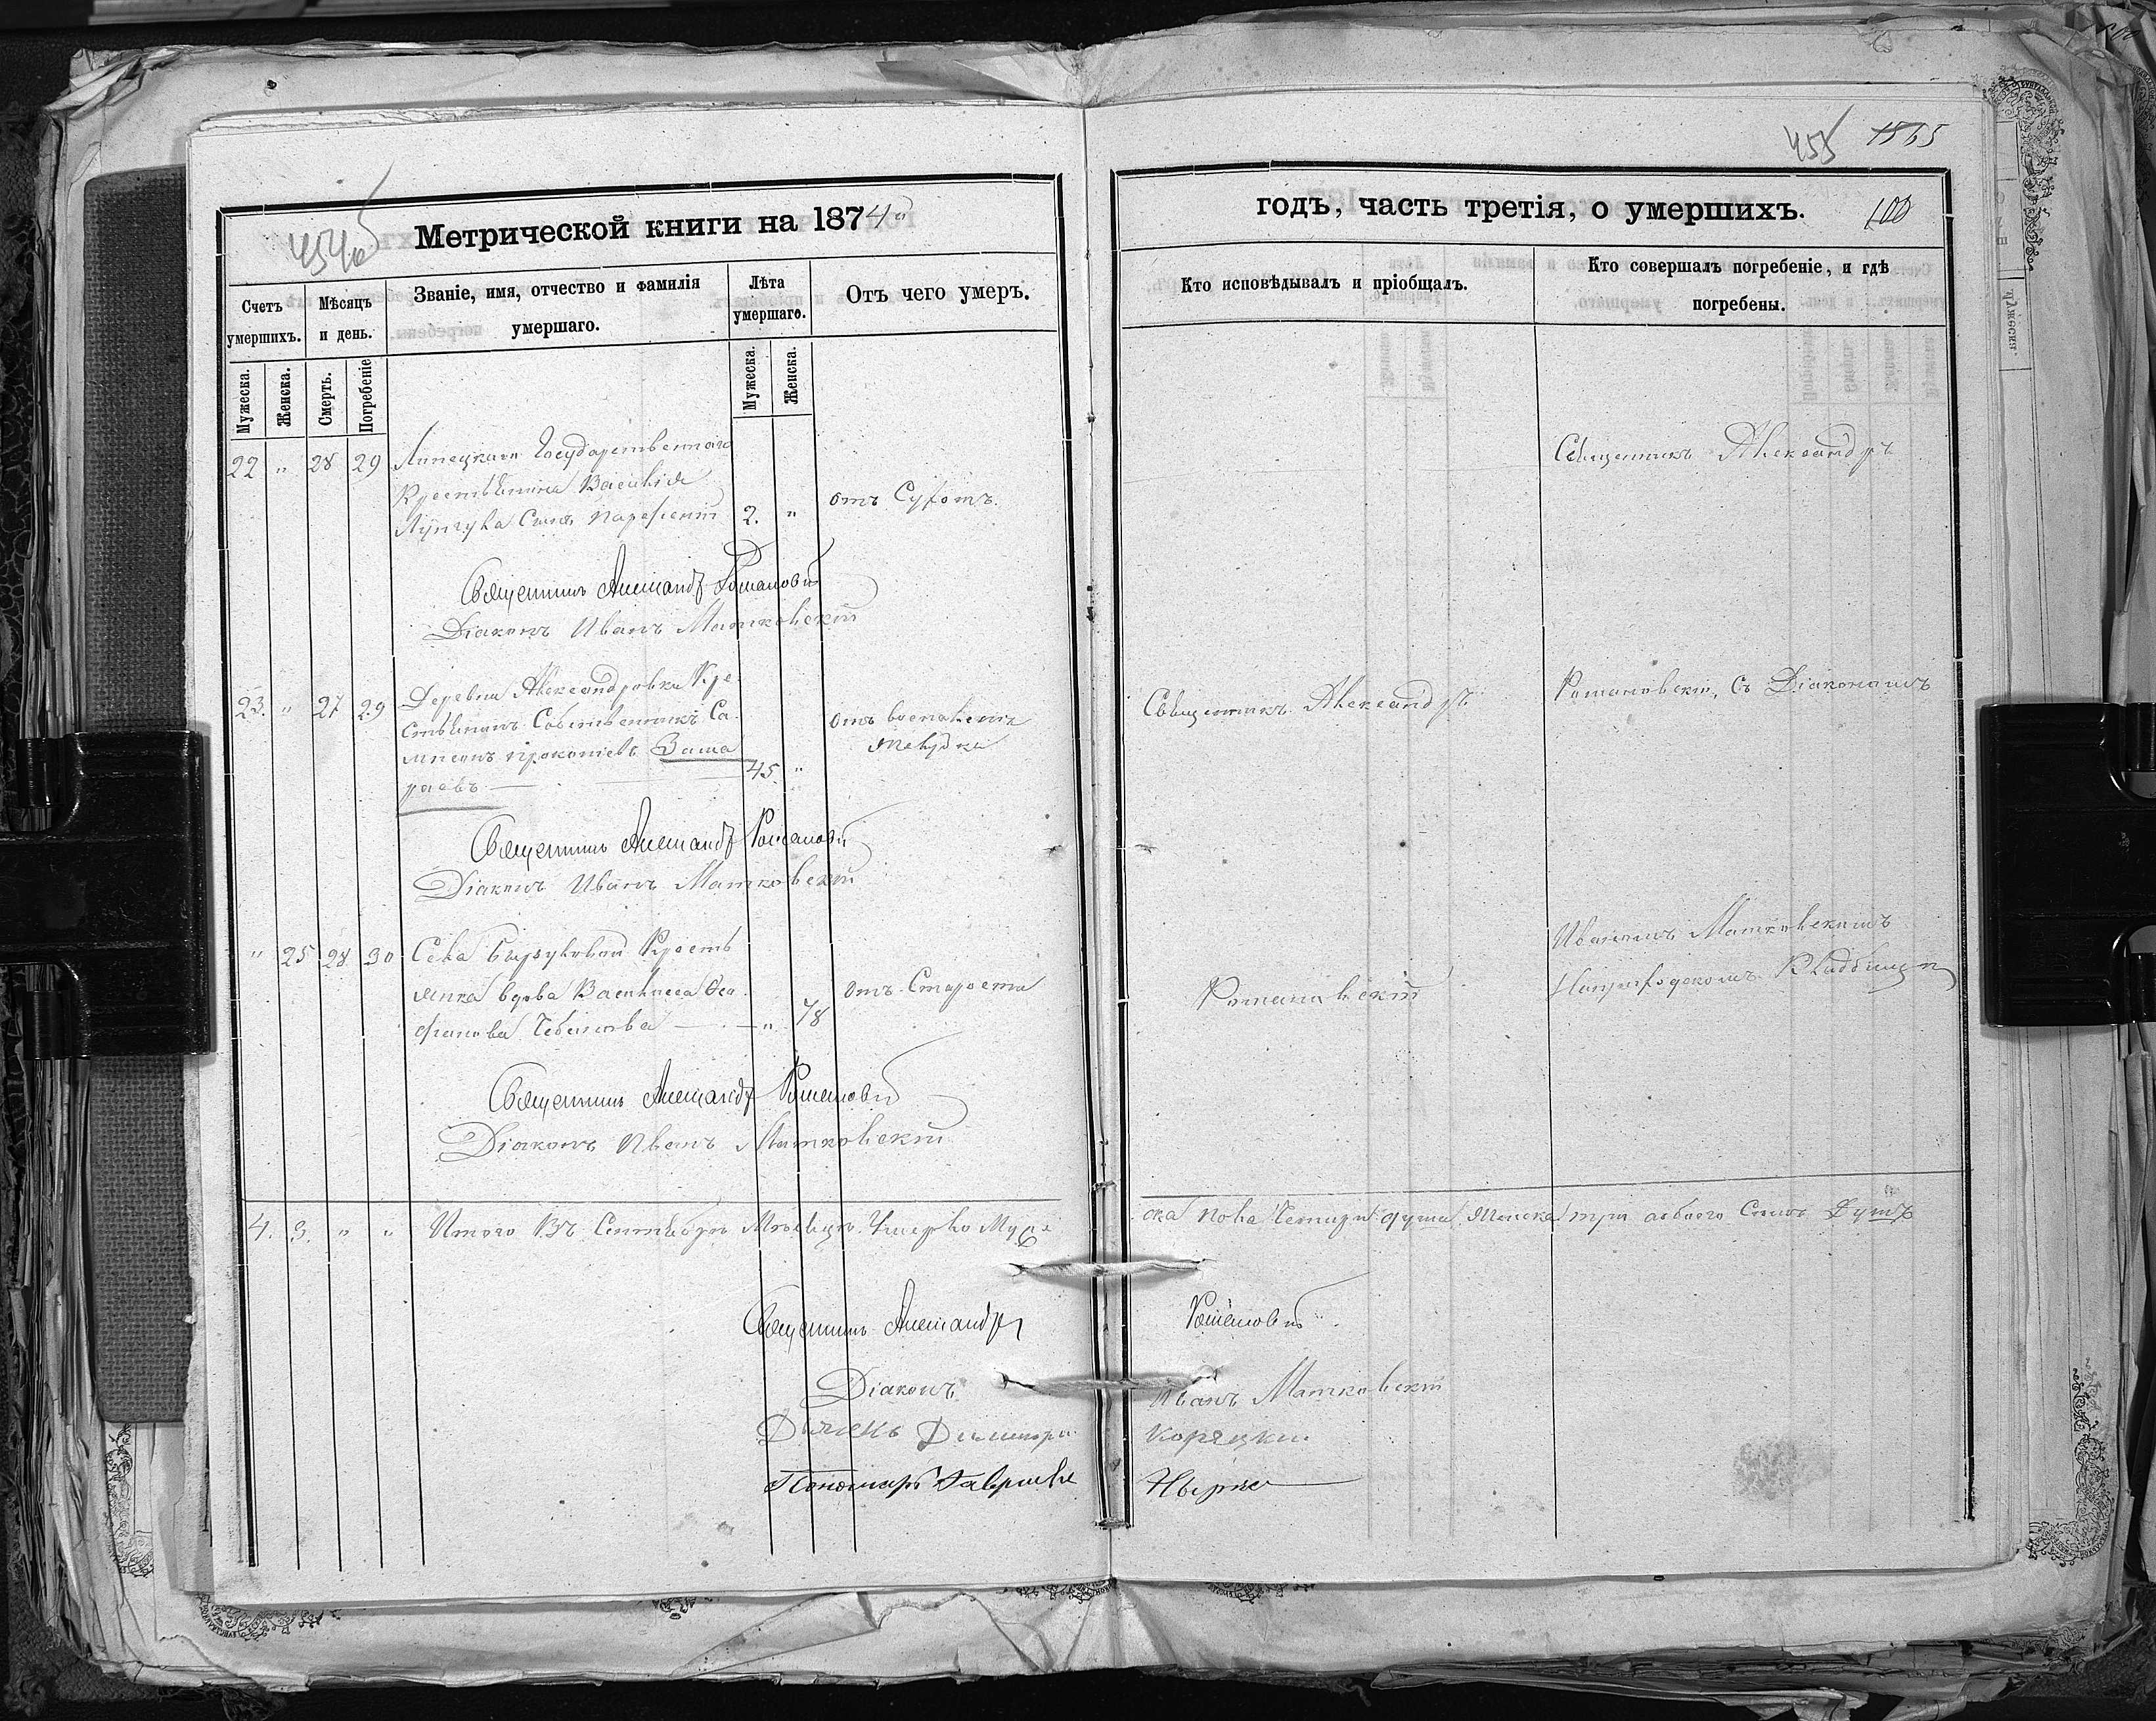 454об
Метрической книги на 1874"
Счетъ умершихъ.
Мѣсяцъ и день.
Званіе, имя, отчество и фамилія умершаго.
Лѣта умершаго.
Отъ чего умеръ.
Мужеска.
Женска.
Смерть.
Погребеніе
Мужеска.
Женска.
22 " 28 29
Государственнаго
Крестьянина Василія
Сынъ 2. "
отъ Сухотъ.
Священникъ Александръ Романовскій
Діаконъ Иванъ Матковскій
23. " 27 29
Деревни Александровки Кре
стьянинъ Собственникъ Са
мпсонъ Прокопіевъ Зама
раевъ. 45. "
отъ воспаленія
желудка
Священникъ Александръ Романовскій
Діаконъ Иванъ Матковскій
" 25 28 30
Села Крестъ
янка вдова Василисса
фанова " 78
отъ Старости
Священникъ Александръ Романовскій
Діаконъ Иванъ Матковскій
4. 3. " " Итого Въ Сентябрѣ Мѣсяцѣ Умерло Муже
Священникъ Александръ
Діаконъ
Дьячекъ Димитрій
Пономарь Гавріилъ
455 1565
годъ, часть третія, о умершихъ. 100
Кто исповѣдывалъ и пріобщалъ.
Кто совершалъ погребеніе, и гдѣ погребены.
Священникъ Александръ
Священникъ Александръ
Романовскій, съ Діакономъ
Иваномъ Матковскимъ
Романовскій
На приходскомъ Кладбищѣ
ска пола Четыри душа Женска три обоего Семь Душъ
Романовскій.
Иванъ Матковскій
Корецкій